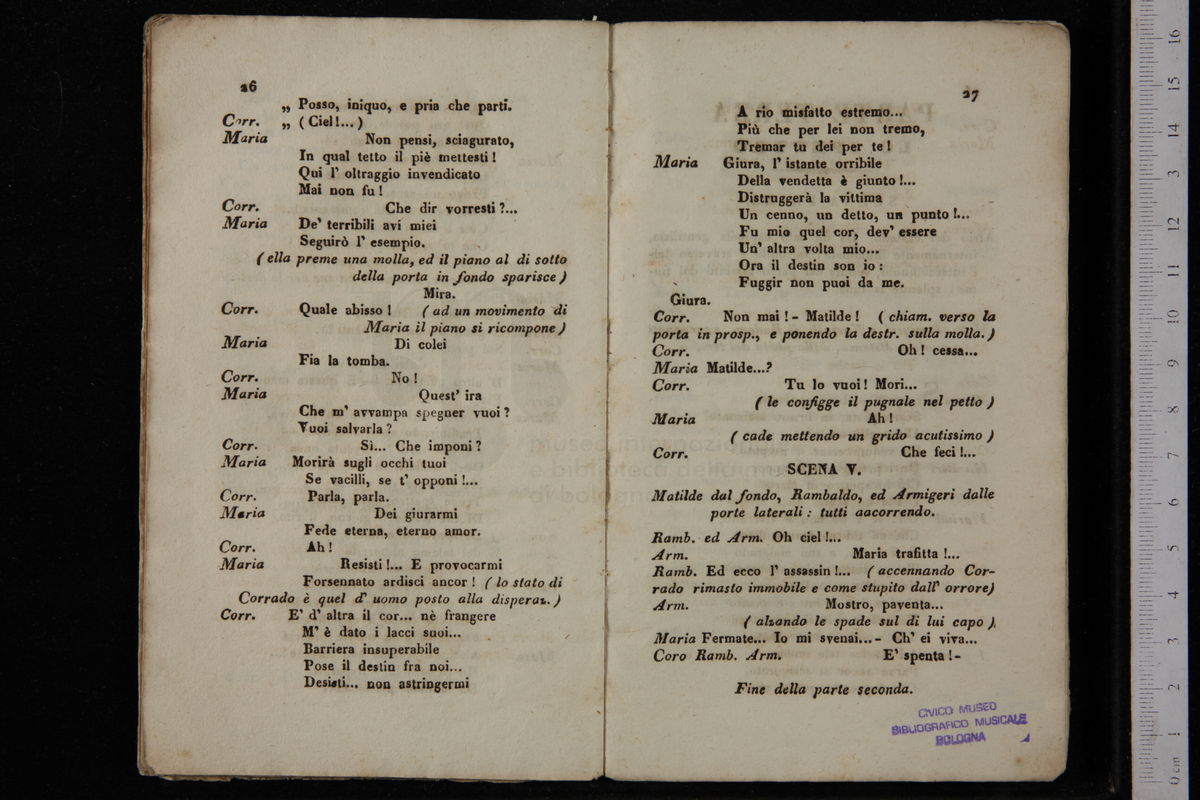 26
„ Posso, iniquo, e pria che parti.
Corr. „ ( Ciel!...)
Maria Non pensi, sciagurato,
In qual tetto il piè mettesti !
Qui l' oltraggio invendicato
Mai non fu !
Corr. Che dir vorresti ?...
Maria De' terribili avi miei
Seguirò l' esempio.
( ella preme una molla, ed il piano al di sotto
della porta in fondo sparisce )
Mira.
Corr. Quale abisso ! ( ad un movimento di
Maria il piano si ricompone )
Maria Di colei
Fia la tomba.
Corr. No !
Maria Quest' ira
Che m' avvampa spegner vuoi ?
Vuoi salvarla ?
Corr. Sì... Che imponi ?
Maria Morirà sugli occhi tuoi
Se vacilli, se t' opponi !...
Corr. Parla, parla.
Maria Dei giurarmi
Fede eterna, eterno amor.
Corr. Ah !
Maria Resisti !... E provocarmi
Forsennato ardisci ancor ! ( lo stato di
Corrado è quel d' uomo posto alla disperaz. )
Corr. E' d' altra il cor... nè frangere
M' è dato i lacci suoi...
Barriera insuperabile
Pose il destin fra noi...
Desisti... non astringermi
27
A rio misfatto estremo...
Più che per lei non tremo,
Tremar tu dei per te !
Maria Giura, l' istante orribile
Della vendetta è giunto !...
Distruggerà la vittima
Un cenno, un detto, un punto !...
Fu mio quel cor, dev' essere
Un' altra volta mio...
Ora il destin son io :
Fuggir non puoi da me.
Giura.
Corr. Non mai ! - Matilde ! ( chiam. verso la
porta in prosp., e ponendo la destr. sulla molla. )
Corr. Oh ! cessa...
Maria Matilde...?
Corr. Tu lo vuoi ! Mori...
( le configge il pugnale nel petto )
Maria Ah !
( cade mettendo un grido acutissimo )
Corr. Che feci !...
SCENA V.
Matilde dal fondo, Rambaldo, ed Armigeri dalle
porte laterali : tutti aacorrendo.
Ramb. ed Arm. Oh ciel !...
Arm. Maria trafitta !...
Ramb. Ed ecco l' assassin !... ( accennando Cor-
rado rimasto immobile e come stupito dall' orrore)
Arm. Mostro, paventa...
( alzando le spade sul di lui capo )
Maria Fermate... Io mi svenai...- Ch' ei viva...
Coro Ramb. Arm. E' spenta ! -
Fine della parte seconda.
CIVICO MUSEO
BIBLIOGRAFICO MUSICALE
BOLOGNA
museo internazionale
e biblioteca della musica
di bologna
0 cm 1 2 3 4 5 6 7 8 9 10 11 12 3 14 15 16